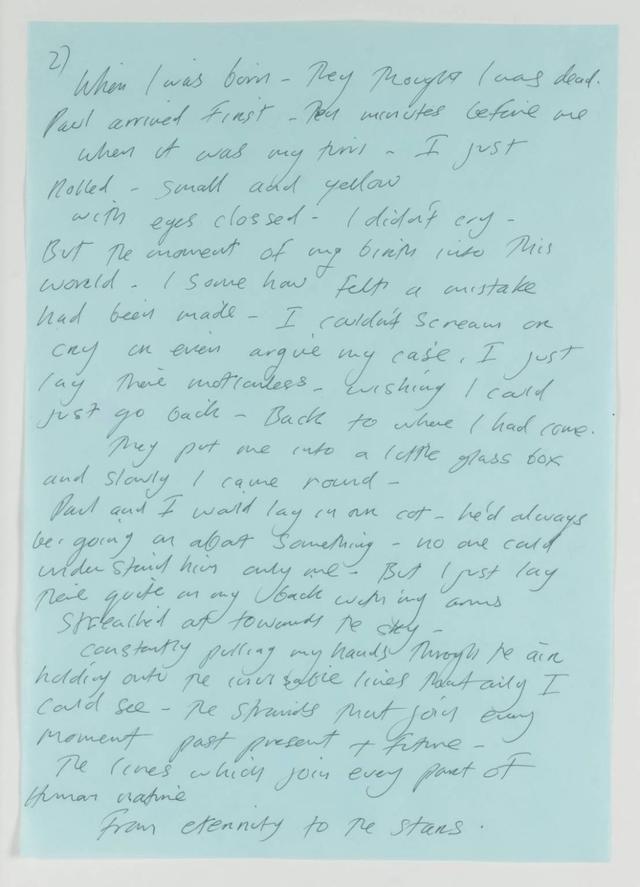 2)
When I was born - They thought I was dead.
Paul arrived First - Ten minutes before me
when it was my turn - I just
Rolled - small and yellow
with eyes clossed - I didn't cry -
But the moment of my birth into this
world - I some how felt a mistake
had been made - I couldn't scream or
cry or even argue my case. I just
lay there motionless - wishing I could
just go back - Back to where I had come.
They put me into a little glass box
and slowly I came round -
Paul and I would lay in our cot - he'd always
be going on about something - no one could
understand him only me - But I just lay
there quite on my back with my arms
streached out towards the sky -
constantly pulling my hands through the air
holding onto the invisable lines that only I
could see - the strands that join every
moment past present + future -
The lines which join every part of
Human nature
From eternity to the stars.